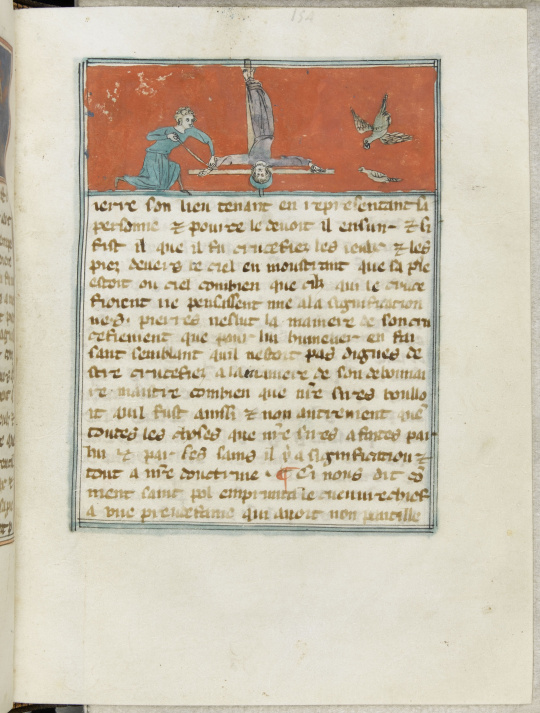 154
ierre son lieu tenant en representant sa
personne & pource le devoit il ensuir & si
fist il que il fu crucefiez les
piez devers le ciel en moustrant que sa
estoit ou ciel combien que cilz qui le cruce
fioient ne pensissent mie a la signification
ne s. pierres neslut la maniere de son cru
cefiement que pour lui humelier en fai
sant semblant quil nestoit pas dignes de
stre crucefiez a la maniere de son debonnai
re maistre combien que nre sires voulo
it quil fust ainsi & non autrement que
toutes les choses que nre sires a faites par
lui & par ses sains il y a signification &
tout a nre doctrine. ¶ Ci nous dit co
ment saint pol emprunta le cueuvrechief
a une preudefame qui avoit non